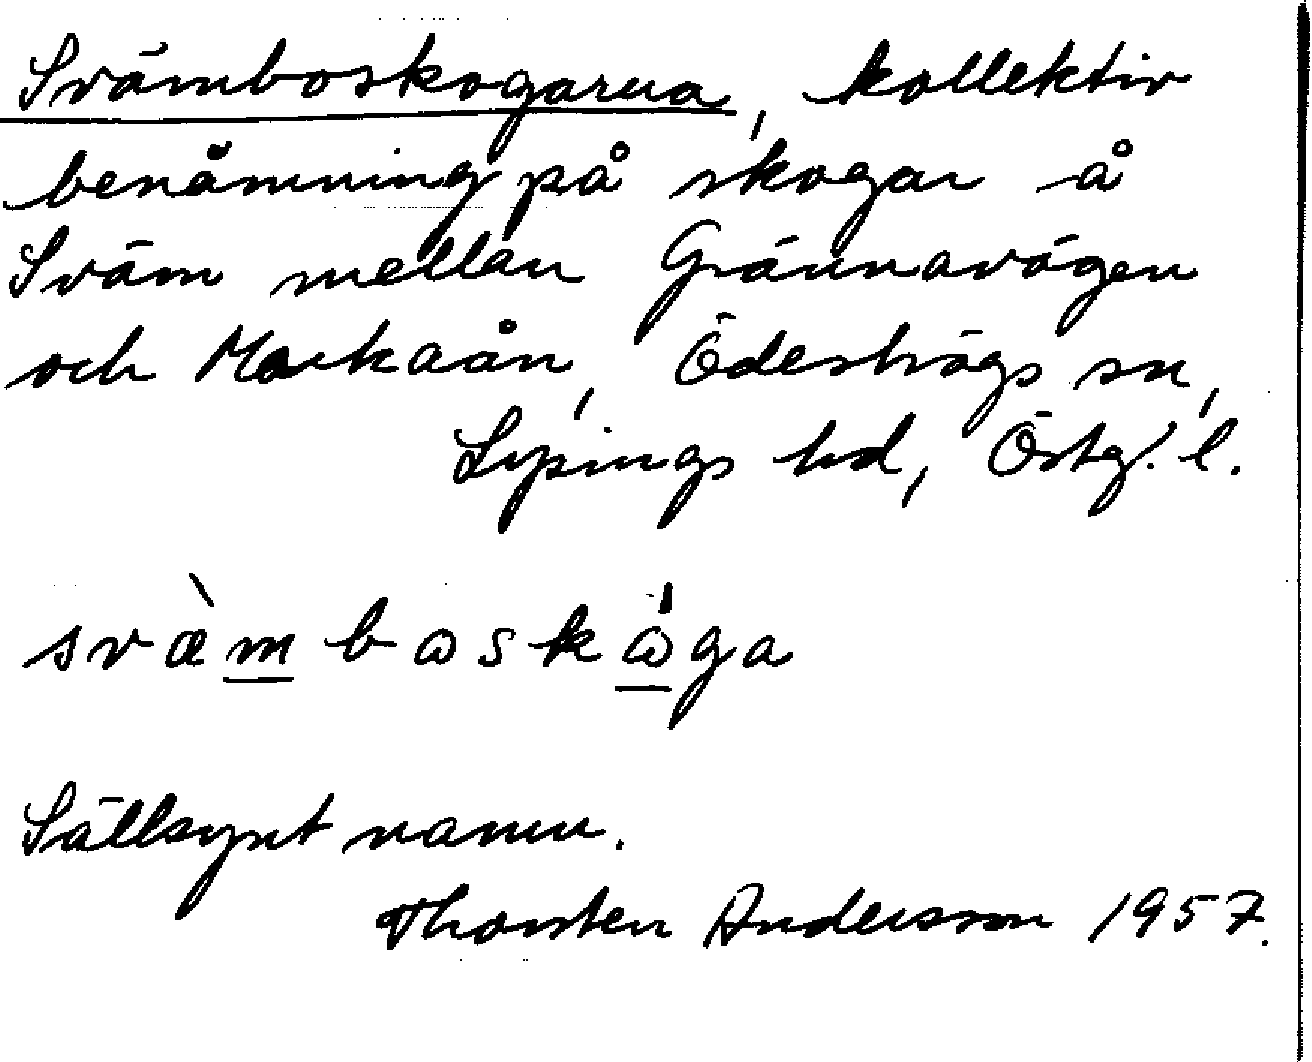 Svämboskogarna, kollektiv
benämning på skogar å
Sväm mellan Grännavägen
och Morkaån, Ödeshögs sn,
Lysings hd, Östg. l.
svæ̀mbɷskɷ́ga
Sällsynt namn.
Thorsten Andersson 1957.